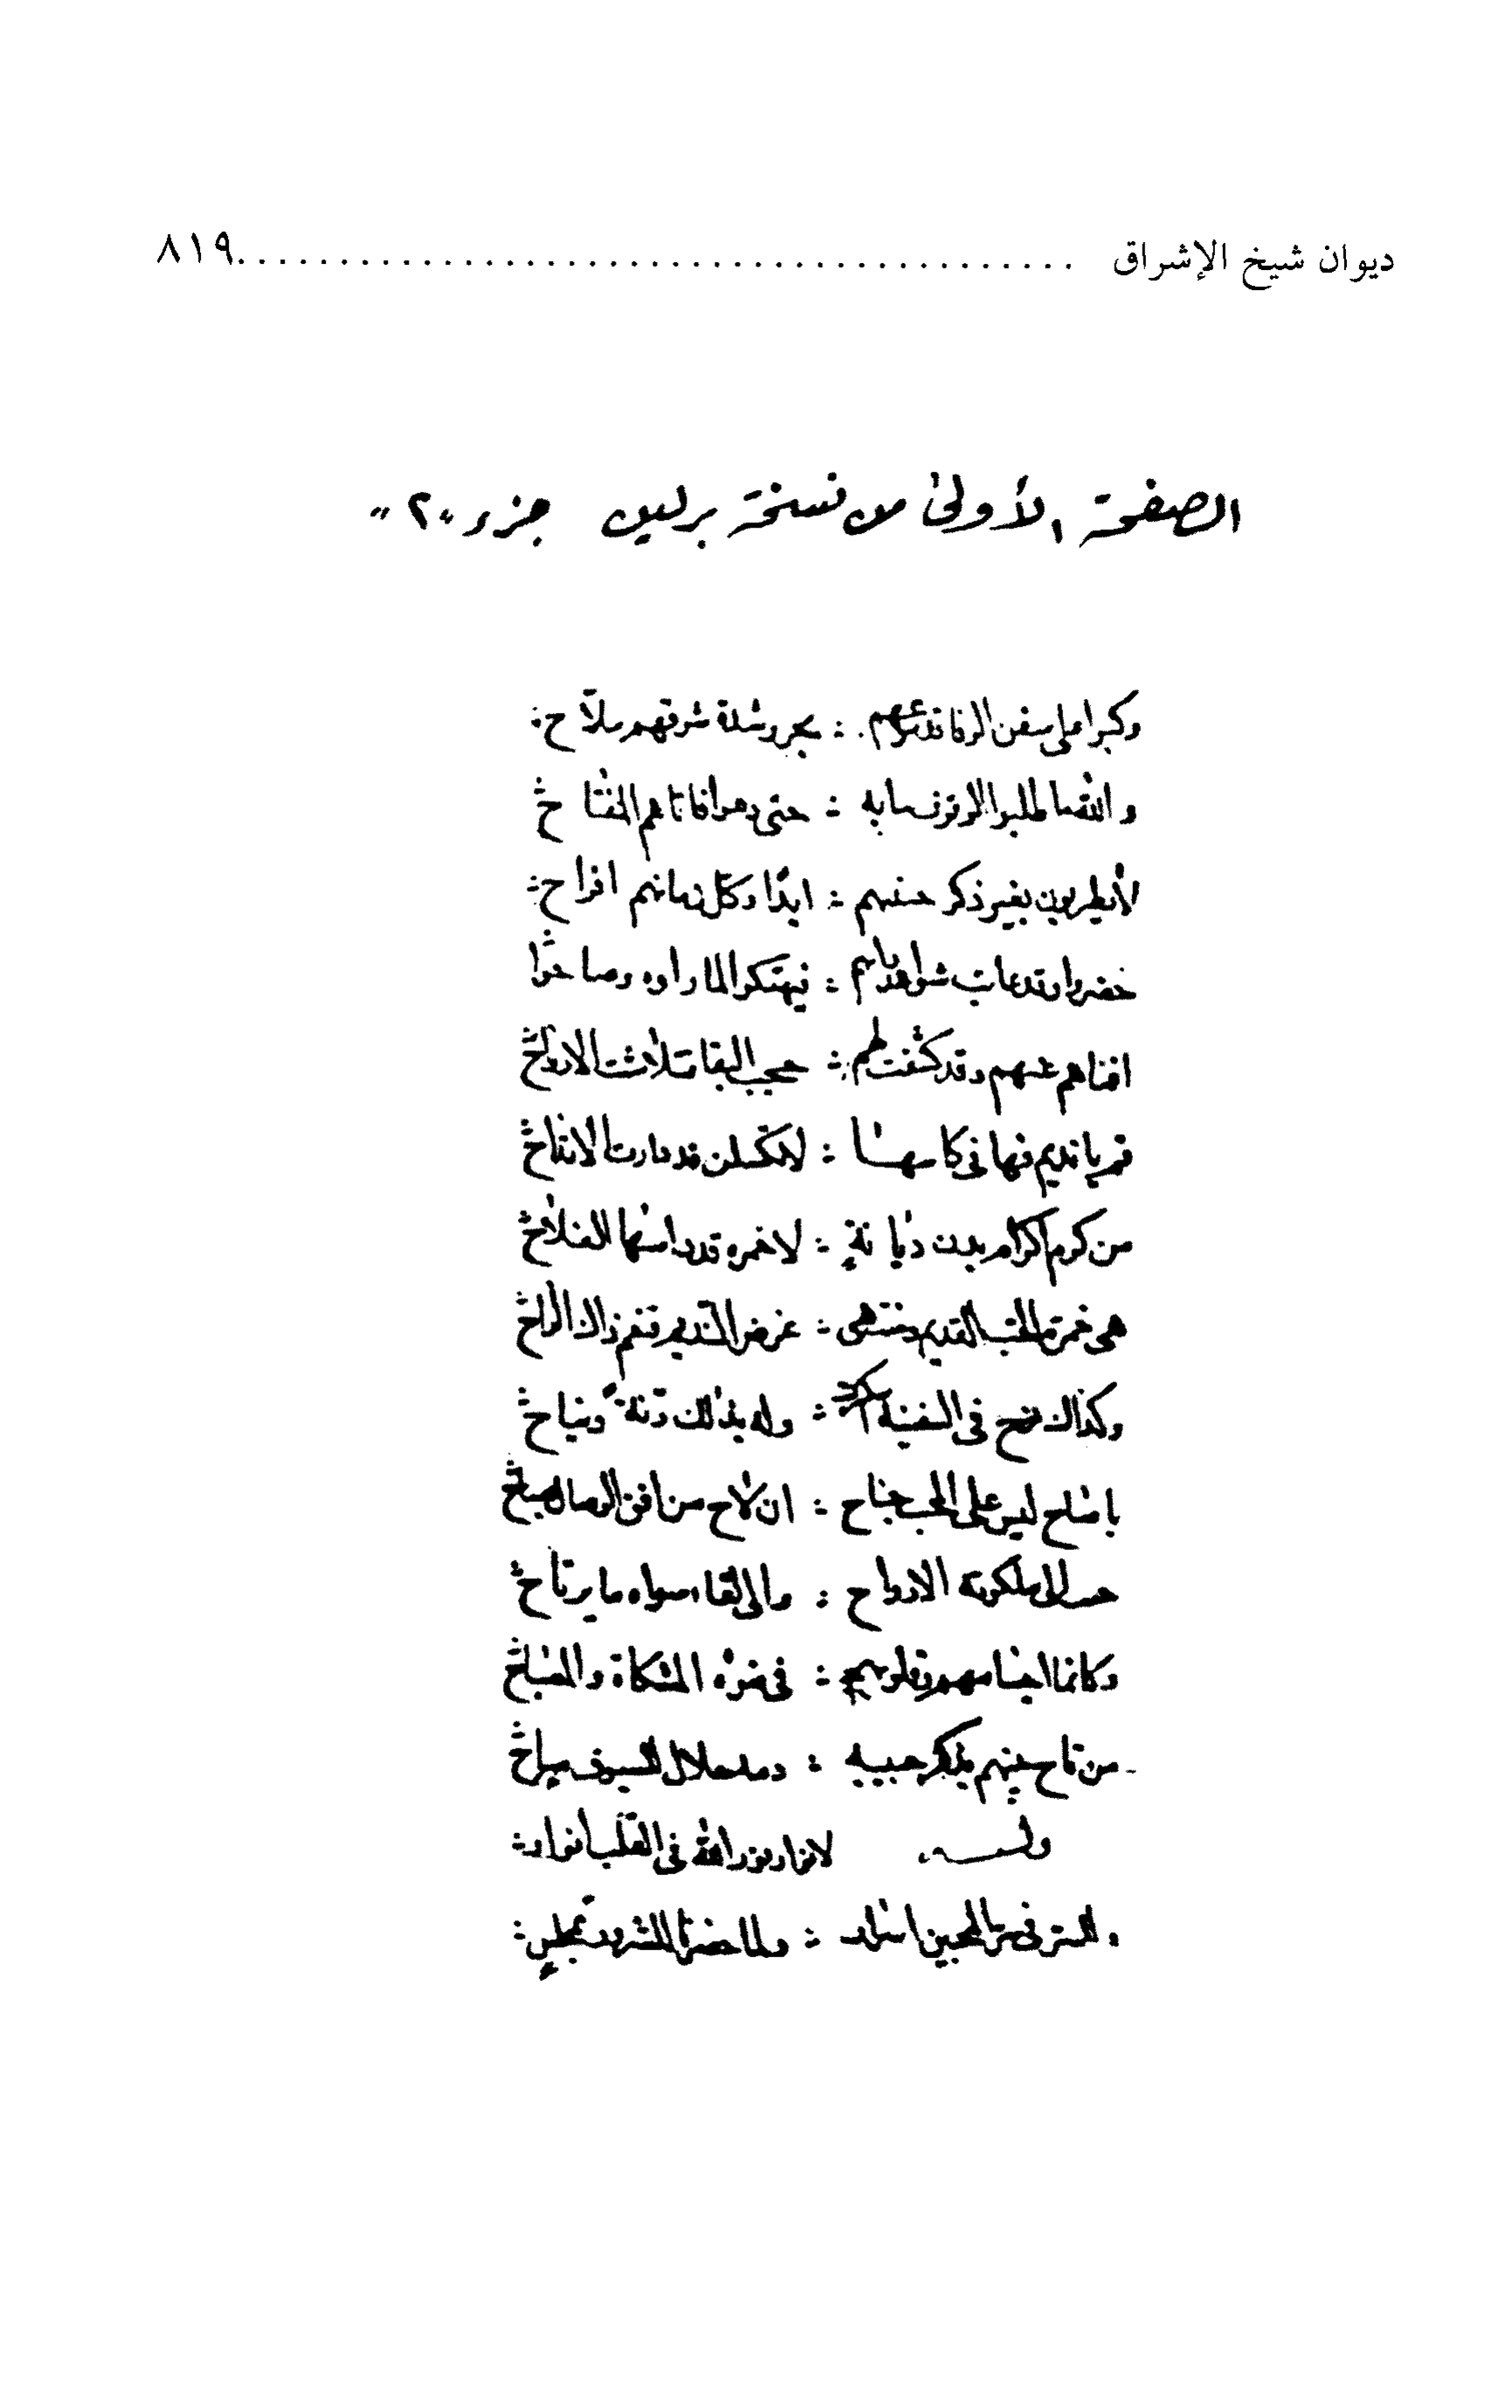 ديوان شيخ الإشراق ........................................ ٨١٩
الصفحة الأولى من نسخة برلين جزء "٢"
وكبوا على سفن الوفا ∴ بحر وشدة شوقهم ملاّح
والله ما طلبوا الوقوف ببابه ∴ حتى دعوا فاتاهم المفتاح
لا يطربون بغير ذكر حبيبهم ∴ ابدًا وكل زمانهم افراح
حضروا وقد غابت شواهد ذاتهم ∴ فتهتكوا لما راوه وصاحوا
افناهم عنهم وقد كشفت لهم ∴ حجب البقا فتلاشت الارواح
قم يا نديم فى كاسها ∴ قد دارت الاقداح
من كرم اكرام بدن ديانةٍ ∴ لا خمره قد داسها الفلاح
هى خمرة الحب القديم ومنتهى ∴ غرض النديم فنعم ذاك الراح
وكذاك نوح فى السفينة ∴ وله بذلك رنةٌ ونياح
يا صاح ليس على المحب جناح ∴ ان لاح من افق الوصال صباح
الارواح ∴ والى لقاء سواه ما يرتاح
وكانما اجسامهم وقلوبهم ∴ فى ضوء المشكاة والمصباح
من باح بينهم بذكر حبيبه ∴ دمه حلال للسيوف مباح
وله لانوار نور الله فى القلب انوار ∴
وللسر فى سر المحبين اسرار ∴ ولما حضرنا للسرور بمجلسٍ ∴